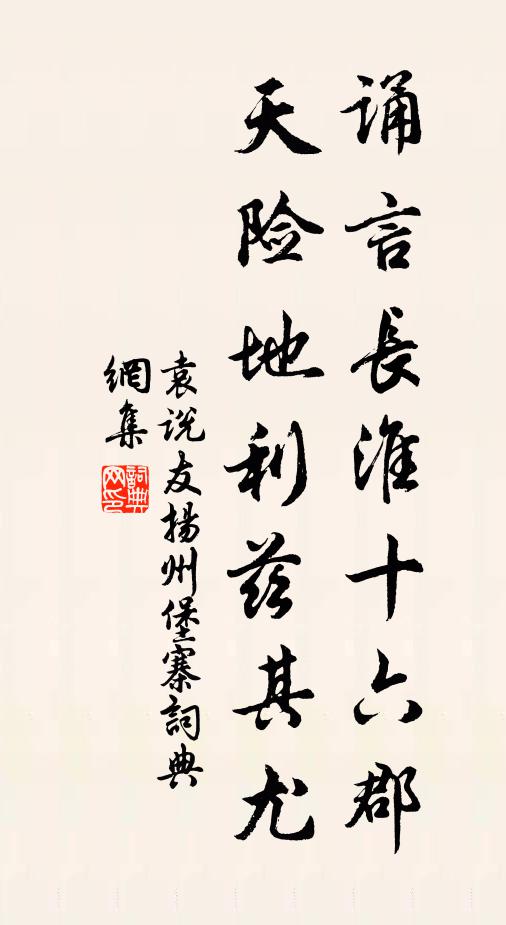 诵言長淮十六郡
天险地利兹其尤
袁说友揚州堡寨詞典
網集
詞典網印